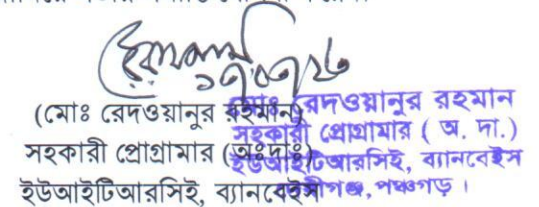 (মোঃ রেদওয়ানুর রহমান)
সহকারী প্রোগ্রামার (অঃদাঃ)
ইউআইটিআরসিই, ব্যানবেইস
মোঃ রেদওয়ানুর রহমান
সহকারী প্রোগ্রামার ( অ. দা.)
ইউআইটিআরসিই, ব্যানবেইস
পঞ্চগড় ।